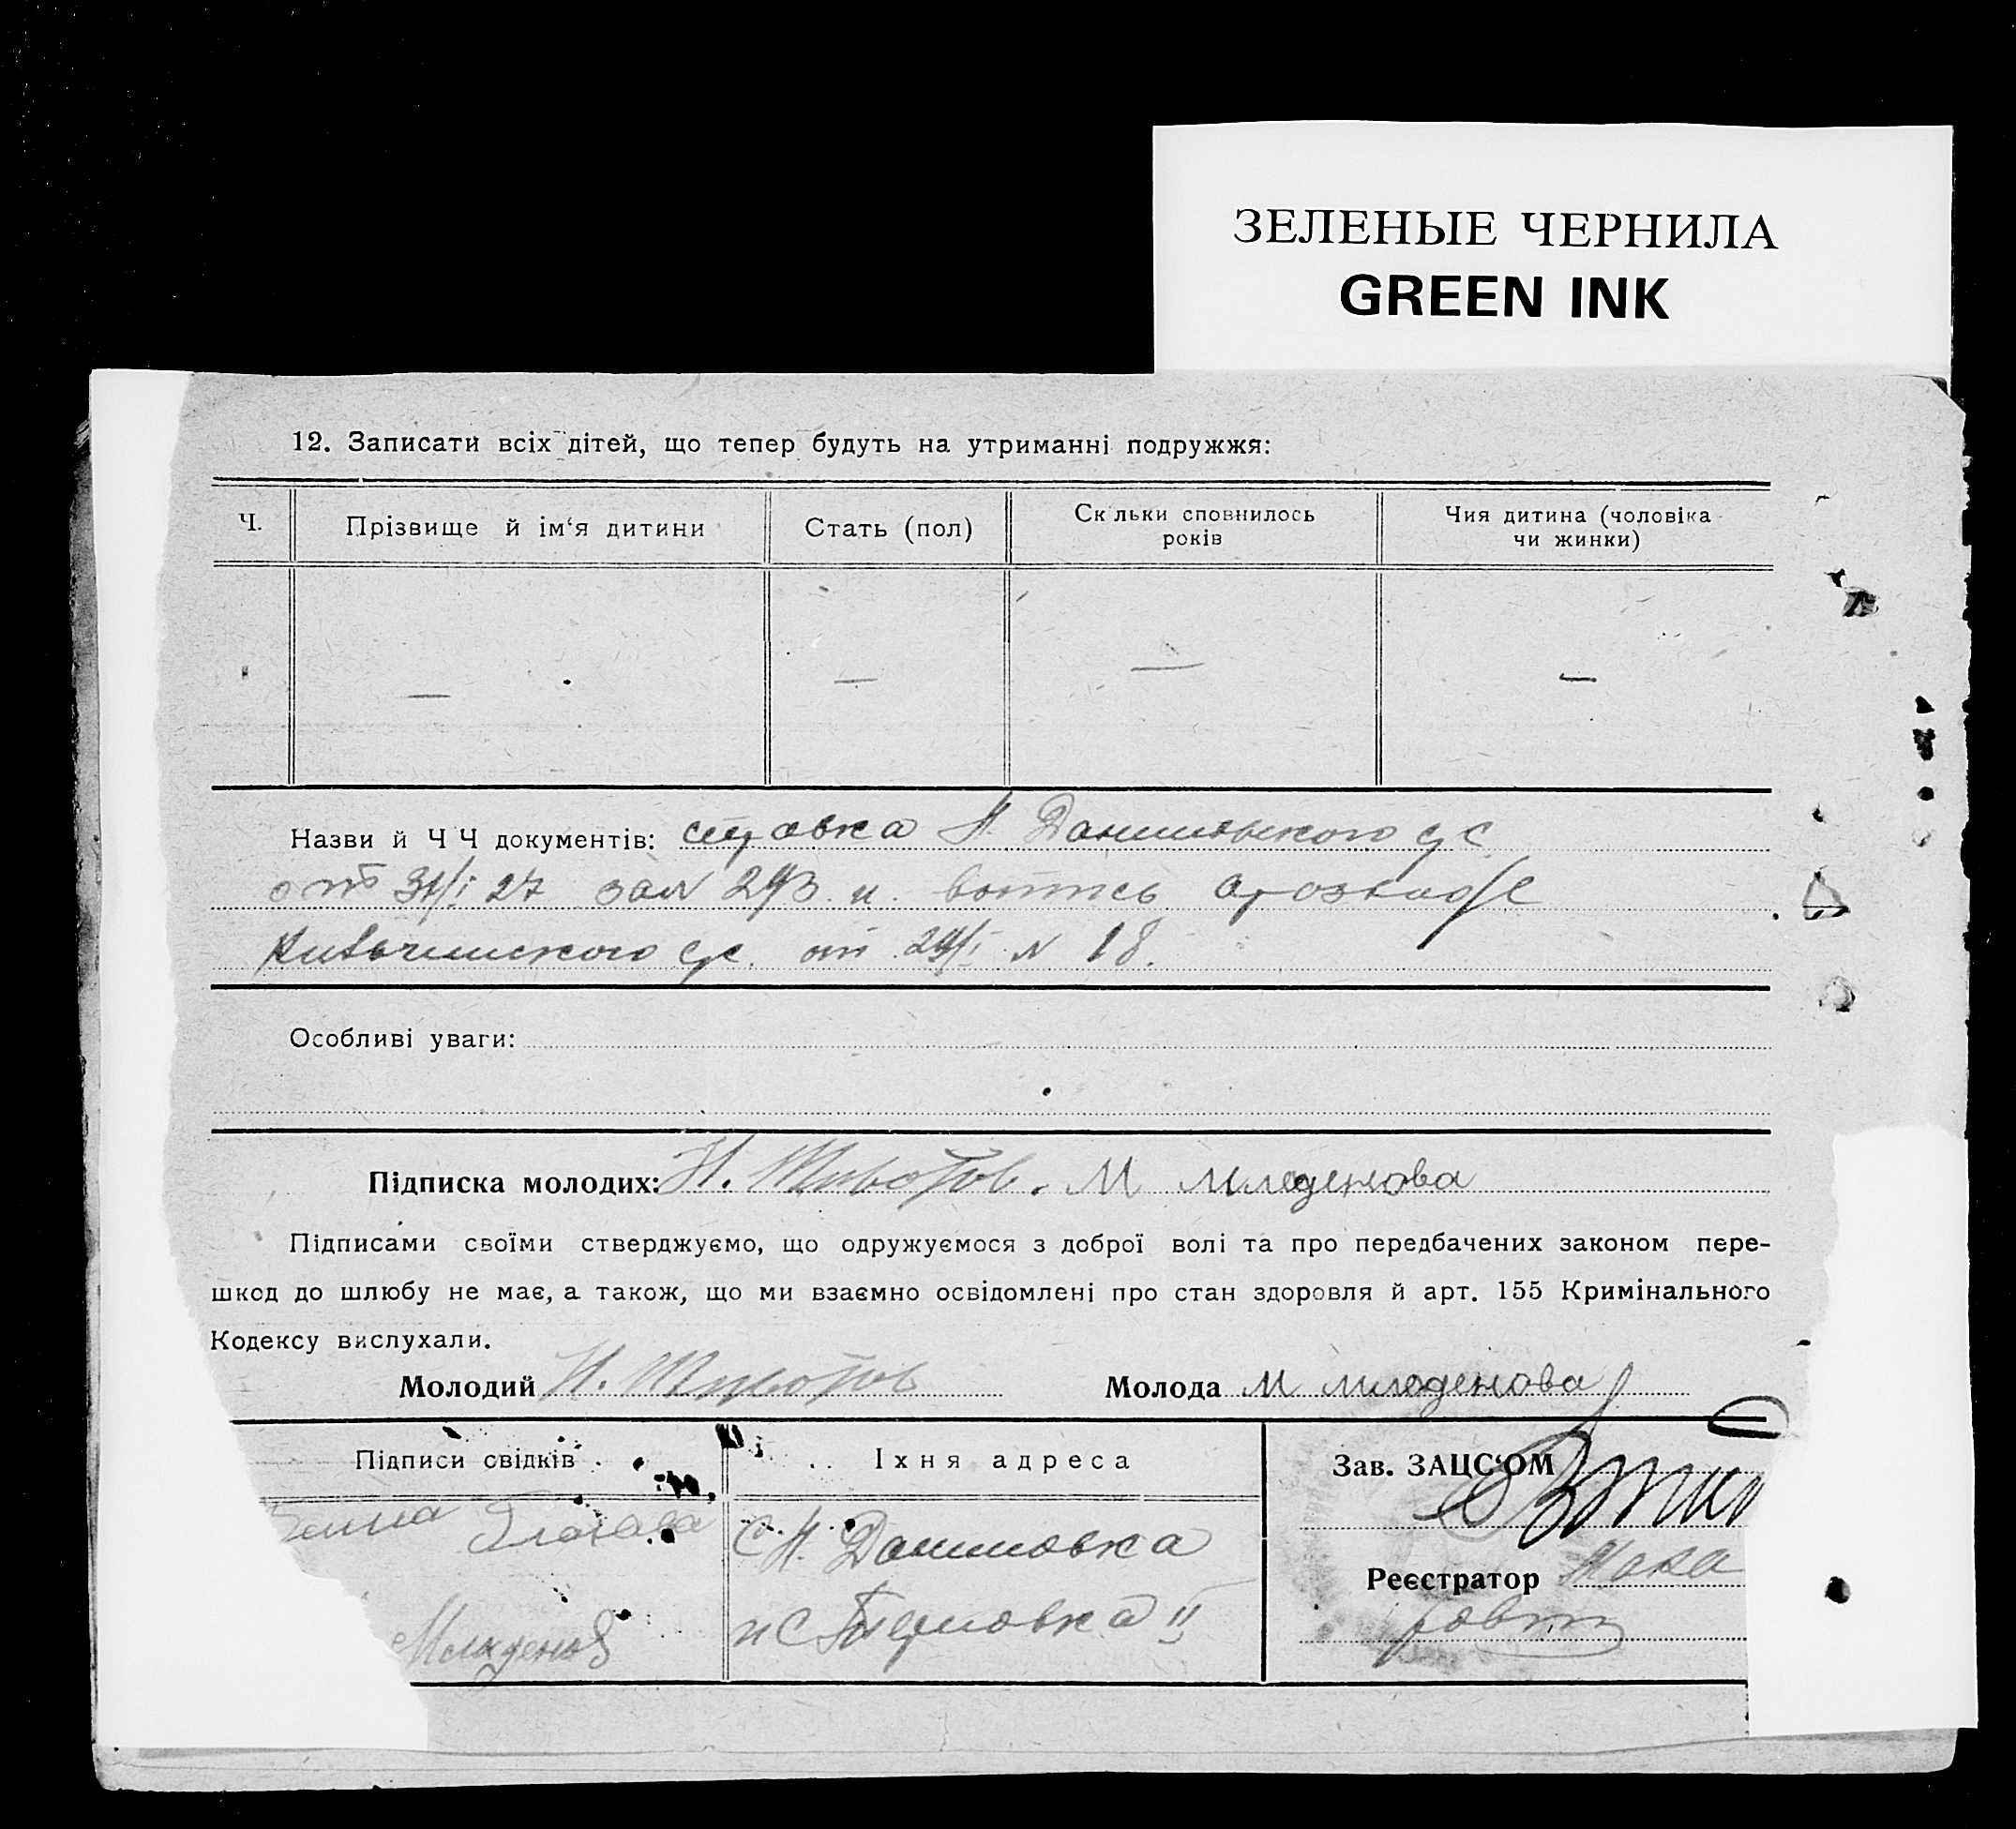 ЗЕЛЕНЫЕ ЧЕРНИЛА
GREEN INK
12. Записати всіх дітей, що тепер будуть на утриманні подружжя:
Ч.
Прізвище й ім‘я дитини
Стать (пол)
Ск льки сповнилось
років
Чия дитина (чоловіка
чи жинки)
— — — —
Назви й Ч Ч документів: справка Н. Даниловского с/с
от 31/I 27 за N 293 и
от 29/I N 18.
Особливі уваги:
Підписка молодих: Н. Животов. М Младенова
Підписами своїми стверджуємо, що одружуємося з доброї волі та про передбачених законом пере-
шкод до шлюбу не має, а також, що ми взаємно освідомлені про стан здоровля й арт. 155 Кримінального
Кодексу вислухали.
Молодий Н. Животов Молода М Младенова
Підписи свідків
Їхня адреса
Зав. ЗАЦС‘ОМ
С Н. Даниловка
Реєстратор
Младенов
и С Терновка II